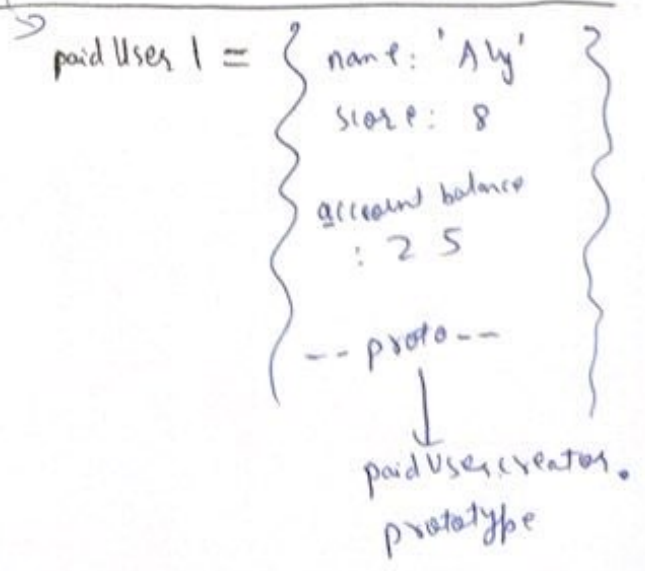 paid User 1 = { name: 'Aly' }
score: 8
account balance
: 25
-- proto --
↓
paidUsercreator.
prototype